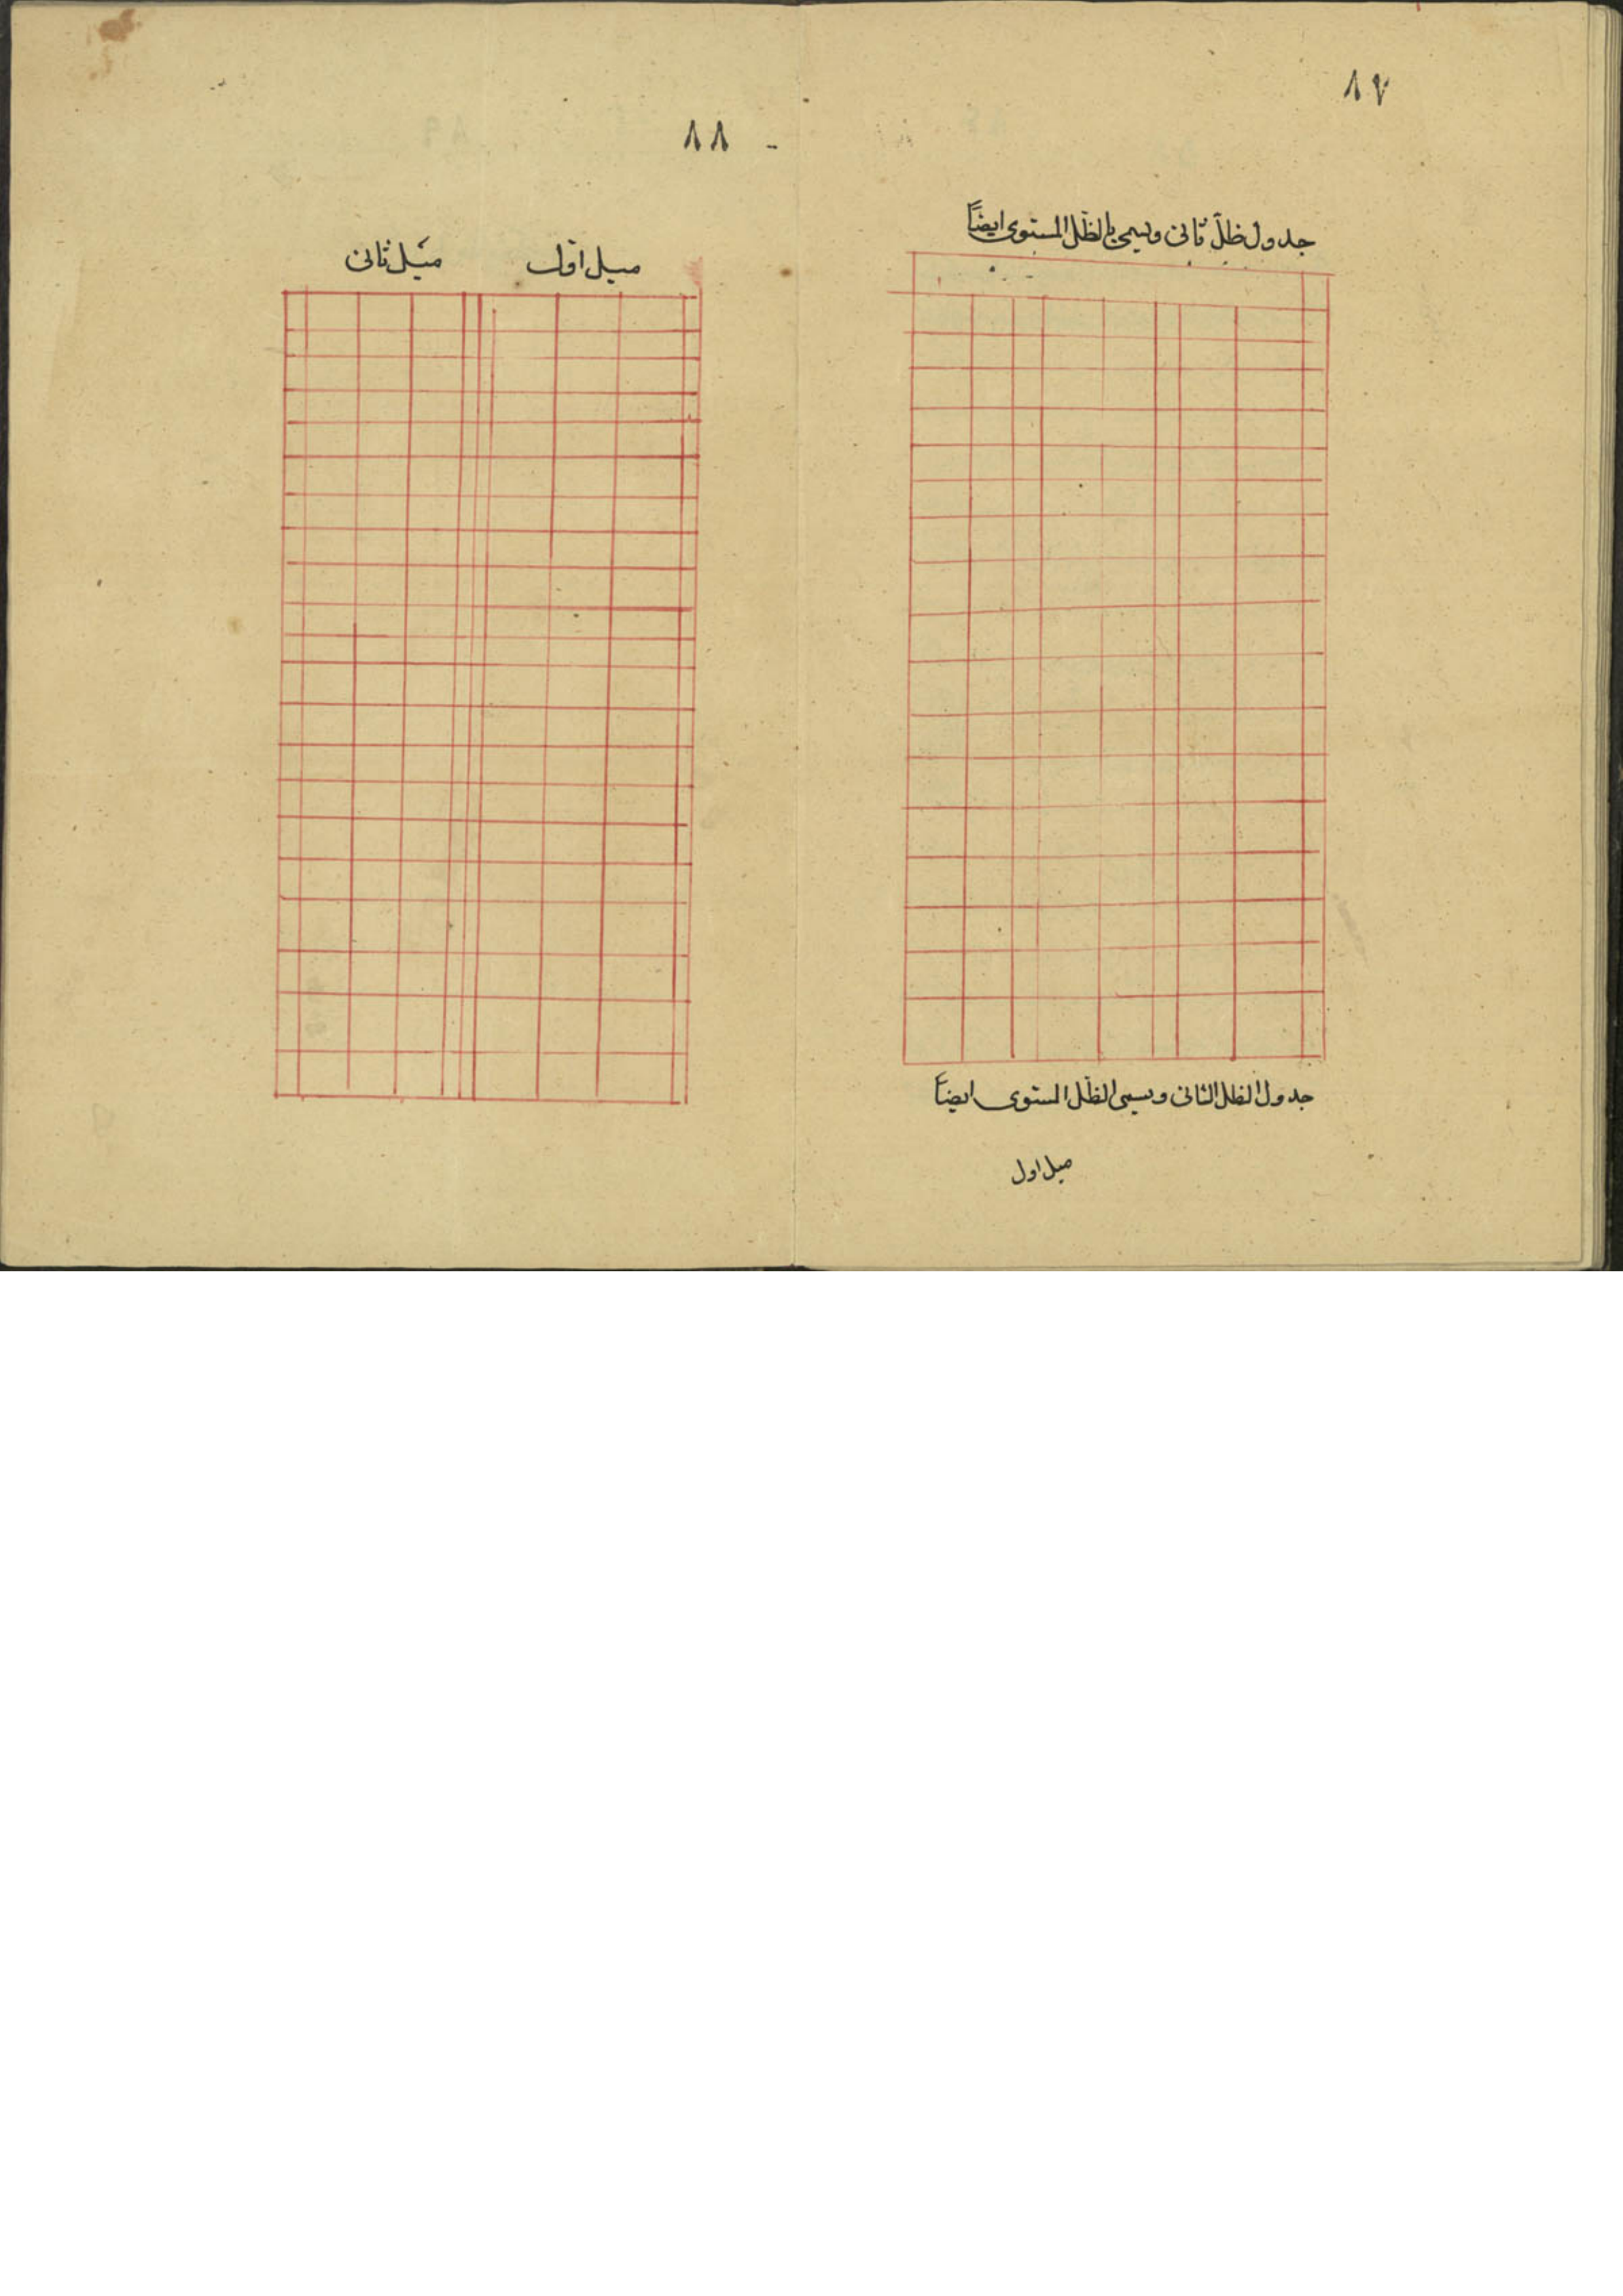 ٨٧
جدول ظلّ ثانى ويسمى بالظّل المستوى ايضاً
جدول الظل الثانى ويسمى الظّل المستوى ايضاً
ميل اول
٨٨
ميل اوّل
ميل ثانى